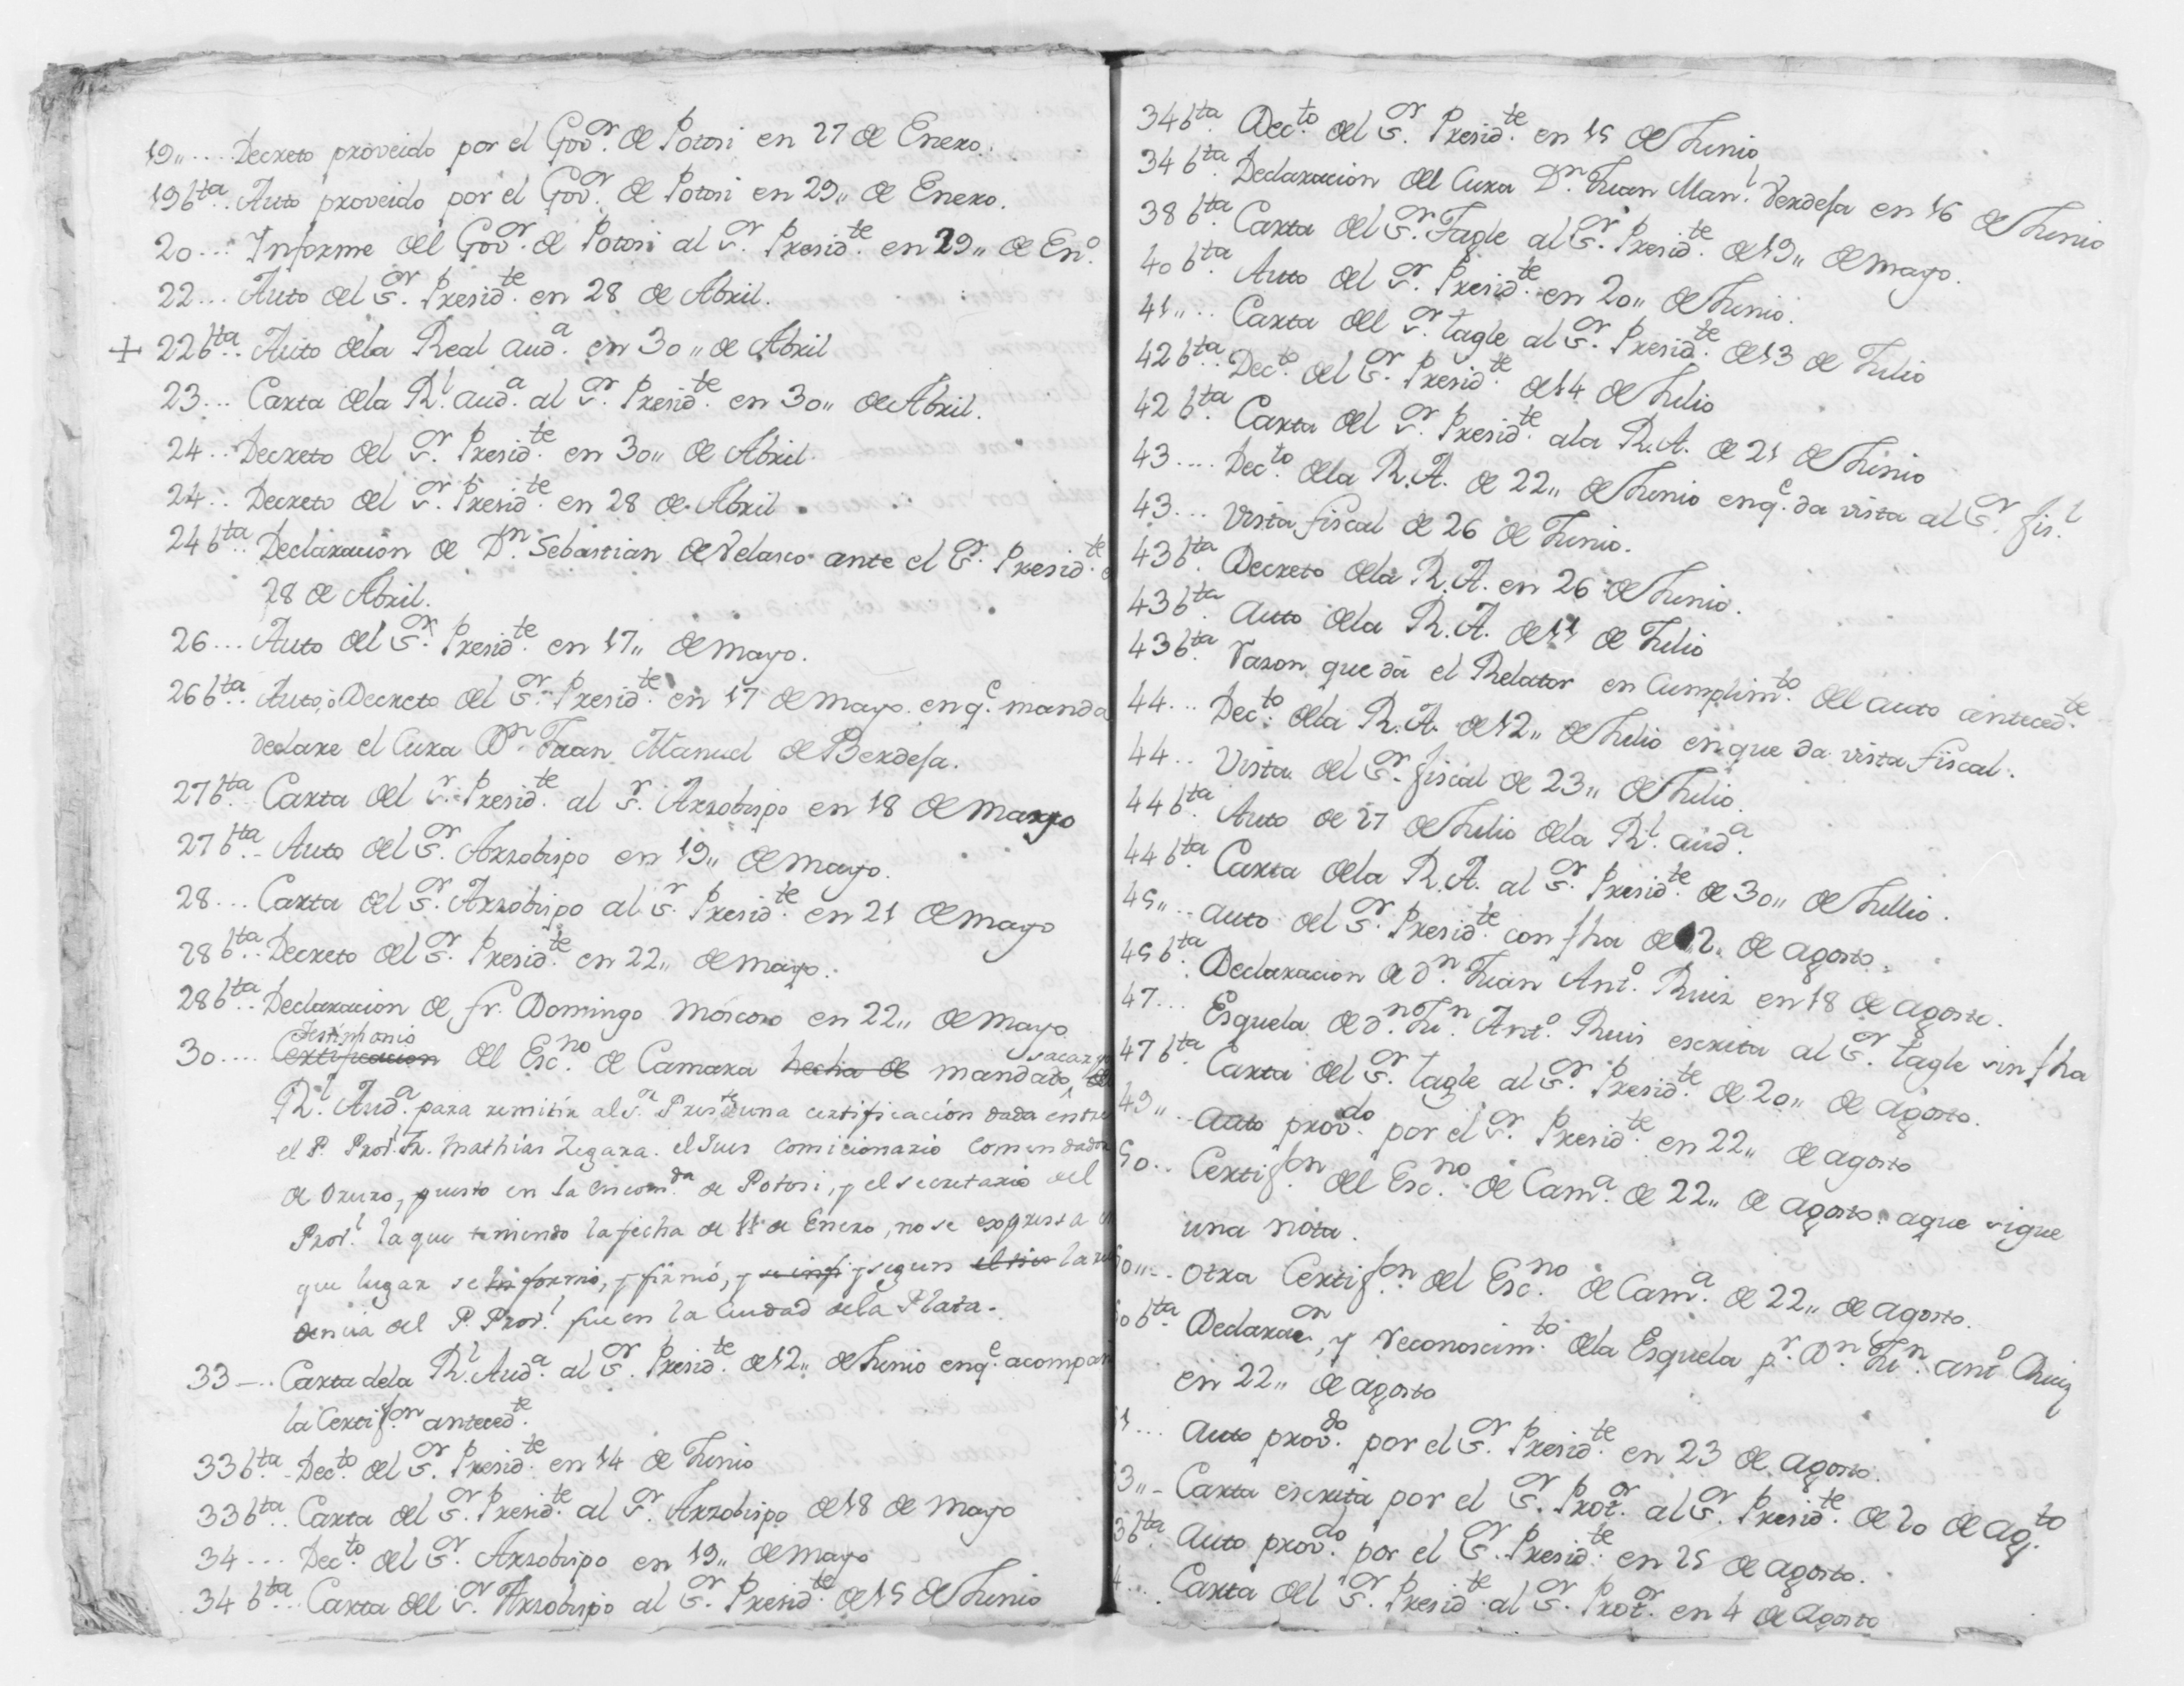 19,,.... Decreto proveido por el Gov.or de Potosi en 27 de Enero.
19 bta. Auto proveido por el Gov.or de Potosi en 29,, de Enero.
20... Informe del Gov.or de Potosi al S.or Presid.te en 29,, de En.o
22... Auto del S.or Presid.te en 28 de Abril.
+ 22 bta. Auto dela Real aud.a en 30,, de Abril
23... Carta dela R.l aud.a al S.or Presid.te en 30,, de Abril.
24.. Decreto del S.or Presid.te en 30,, de Abril.
24.. Decreto del S.or Presid.te en 28 de Abril
24 bta.. Declaracion de D.n Sebastian de Velasco ante el S.or Presid.te
28 de Abril.
26... Auto del S.or Presid.te en 17,, de mayo.
26 bta.. Auto, ò Decreto del S.or Presid.te en 17 de mayo. en q.e manda
declare el Cura D.n Juan Manuel de Berdesa.
27 bta.. Carta del S.r Presid.te al S.r Arzobispo en 18 de mayo
27 bta.- Auto del S.or Arzobispo en 19,, de mayo.
28... Carta del S.or Arzobispo al S.r Presid.te en 21 de mayo
28 bta.. Decreto del S.or Presid.te en 22,, de mayo.
28 bta.. Declaracion de fr. Domingo Moscoso en 22,, de mayo
Testimonio
30.... Certificacion del Esc.no de Camara hecha de mandado sacar
R.l Aud.a para remitir al S.or Pres.te una certificación dada entre
el P. Prov.l Fr. Mathias Zegara. el Jues comicionario Comendador
de Oruro, puesto en la encom.da de Potosi, y el secretario del
Prov.l la que teniendo la fecha de 11 de Enero, no se expressa
que lugar se informó, y firmó, y se infi y segun el sitio
dencia del P. Prov.l fue en la Ciudad dela Plata.
33-.. Carta dela R.l Aud.a al S.or Presid.te de 12,, de Junio enq.e
la Certif.on anteced.te
33 bta.- Dec.to del S.or Presid.te en 14 de Junio
33 bta.. Carta del S.or Presid.te al S.or Arzobispo de 18 de mayo
34... Dec.to del S.or Arzobispo en 19,, de mayo
34 bta... Carta del S.or Arzobispo al S.or Presid.te de 15 de Junio
34 bta. Dec.to del S.or Presid.te en 15 de Junio
34 bta. Declaracion del Cura D.n Juan Man.l Verdesa en 16 de Junio
38 bta. Carta del S.or Tagle al S.or Presid.te de 19,, de mayo.
40 bta. Auto del S.or Presid.te en 20,, de Junio.
41,,.. Carta del S.or tagle al S.or Presid.te de 13 de Julio
42 bta.. Dec.to del S.or Presid.te de 14 de Julio
42 bta. Carta del S.or Presid.te ala R.A. de 21 de Junio
43.... Dec.to dela R.A. de 22,, de Junio enq.e da vista al S.or fis.l
43... Vista fiscal de 26 de Junio.
43 bta. Decreto dela R.A. en 26 de Junio.
43 bta. Auto dela R.A. de 11 de Julio
43 bta. Vason que dà el Relator en Cumplim.to del auto anteced.te
44... Dec.to dela R.A. de 12,, de Julio en que da vista fiscal.
44.. Vista del S.or fiscal de 23,, de Julio.
44 bta. Auto de 27 de Julio dela R.l aud.a
44 bta. Carta dela R.A. al S.or Presid.te de 30,, de Jullio.
45,,.. auto del S.or Presid.te con fha de 12. de agosto.
45 bta. Declaracion de D.n Juan Ant.o Ruiz en 18 de agosto.
47... Esquela de D.n Ju.n Ant.o Ruis escrita al S.or tagle sin fha
47 bta. Carta del S.or tagle al S.or Presid.te de 20,, de agosto.
49,,.. Auto prov.do por el S.or Presid.te en 22,, de agosto
50.. Certif.on del Esc.no de Cam.a de 22,, de agosto. aque sigue
una nota.
50,,-. otra Certif.on del Esc.no de Cam.a de 22,, de agosto.
50 bta. Declarac.on, y Veconoscim.to dela Esquela p.r D.n Ju.n ant.o Ruiz
en 22,, de agosto
51... Auto prov.do por el S.or Presid.te en 23 de agosto.
53,,- Carta escrita por el S.or Prot.or al S.or Presid.te de 20 de ag.to
53 bta. Auto prov.do por el S.or Presid.te en 25 de agosto.
54... Carta del S.or Presid.te al S.or Prot.or en 4 de agosto